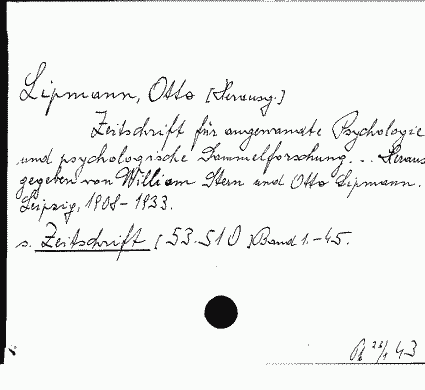 Lipmann, Otto [Herausg.]
Zeitschrift für angewandte Psychologie
und psychologische Sammelforschung... Heraus
gegeben von William Stern und Otto Lipmann.
Leipzig, 1908-1933.
s. Zeitschrift [53.510] Band 1.-45.
43